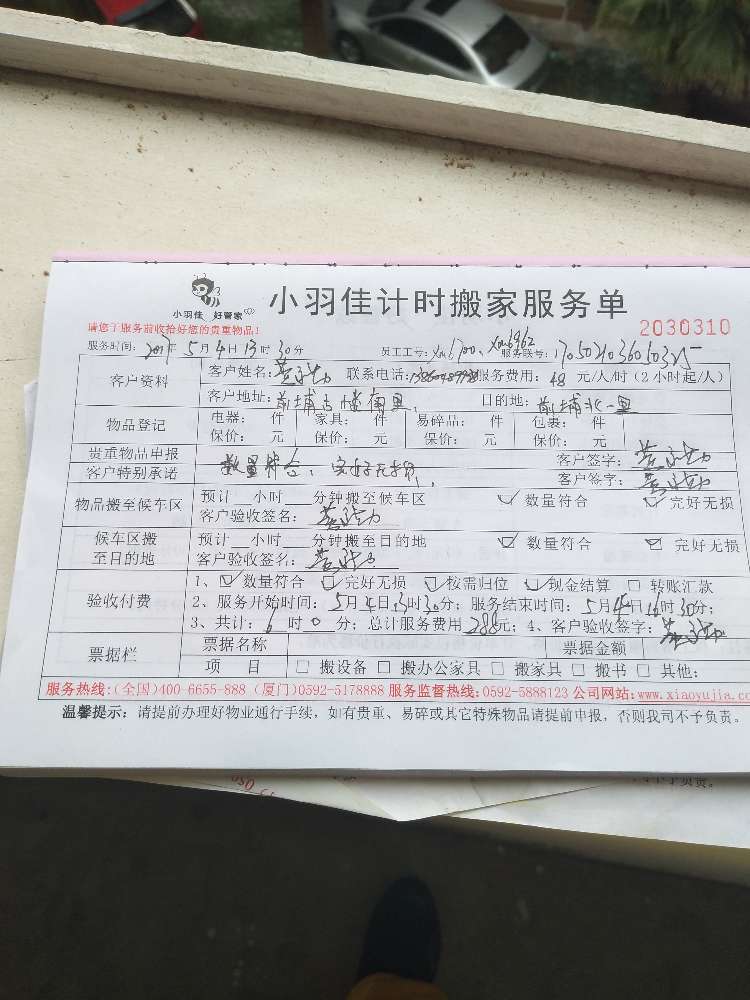 小羽佳 好管家
小羽佳计时搬家服务单
请您于服务前收拾好您的贵重物品!
2030310
服务时间: 2017年 5月 4日 13时 30分 员工工号: xm1700、xm6962 服务联号:
客户资料 客户姓名: 联系电话: 服务费用: 48 元/人/时(2小时起/人)
客户地址: 前埔 南里 目的地: 前埔北一里
物品登记 电器: 件 家具: 件 易碎品: 件 包裹: 件
保价: 元 保价: 元 保价: 元 保价: 元
贵重物品申报 客户签字:
客户特别承诺 数量符合,完好无损 客户签字:
物品搬至候车区 预计 小时 分钟搬至候车区 数量符合 完好无损
客户验收签名:
候车区搬至目的地 预计 小时 分钟搬至目的地 数量符合 完好无损
客户验收签名:
验收付费 1、 数量符合 完好无损 按需归位 现金结算 转账汇款
2、服务开始时间: 5月4日13时30分; 服务结束时间: 5月4日16时30分;
3、共计: 6 时 0 分; 总计服务费用 288元; 4、客户验收签字:
票据栏 票据名称 票据金额
项 目 搬设备 搬办公家具 搬家具 搬书 其他:
服务热线:(全国)400-6655-888 (厦门)0592-5178888 服务监督热线:0592-5888123 公司网站:www.xiaoyujia.co
温馨提示: 请提前办理好物业通行手续, 如有贵重、易碎或其它特殊物品请提前申报, 否则我司不予负责。